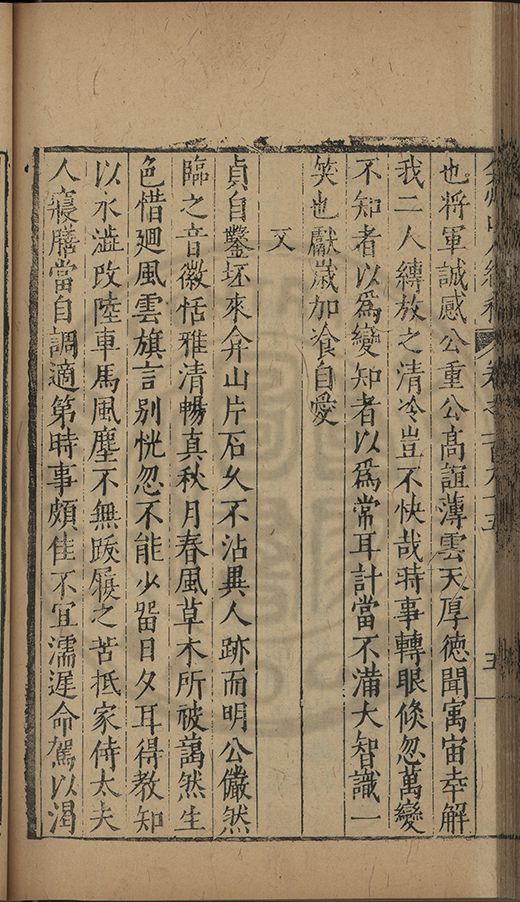 弇州山人續稿 卷之一百九十五 五
也將軍誠感公重公高誼薄雲天厚德聞寓宙幸解
我二人縛放之清冷豈不快哉時事轉眼倐忽萬變
不知者以爲變知者以爲常耳計當不滿大智識一
笑也獻歲加飡自愛
又
貞自鑿坯來弇山片石久不沾異人跡而明公儼然
臨之音徽恬雅清暢真秋月春風草木所被藹然生
色惜廻風雲旗言别恍忽不能少留日夕耳得教知
以水澁改陸車馬風塵不無跋履之苦抵家侍太夫
人寢膳當自調適第時事頗佳不宜濡遲命駕以渴